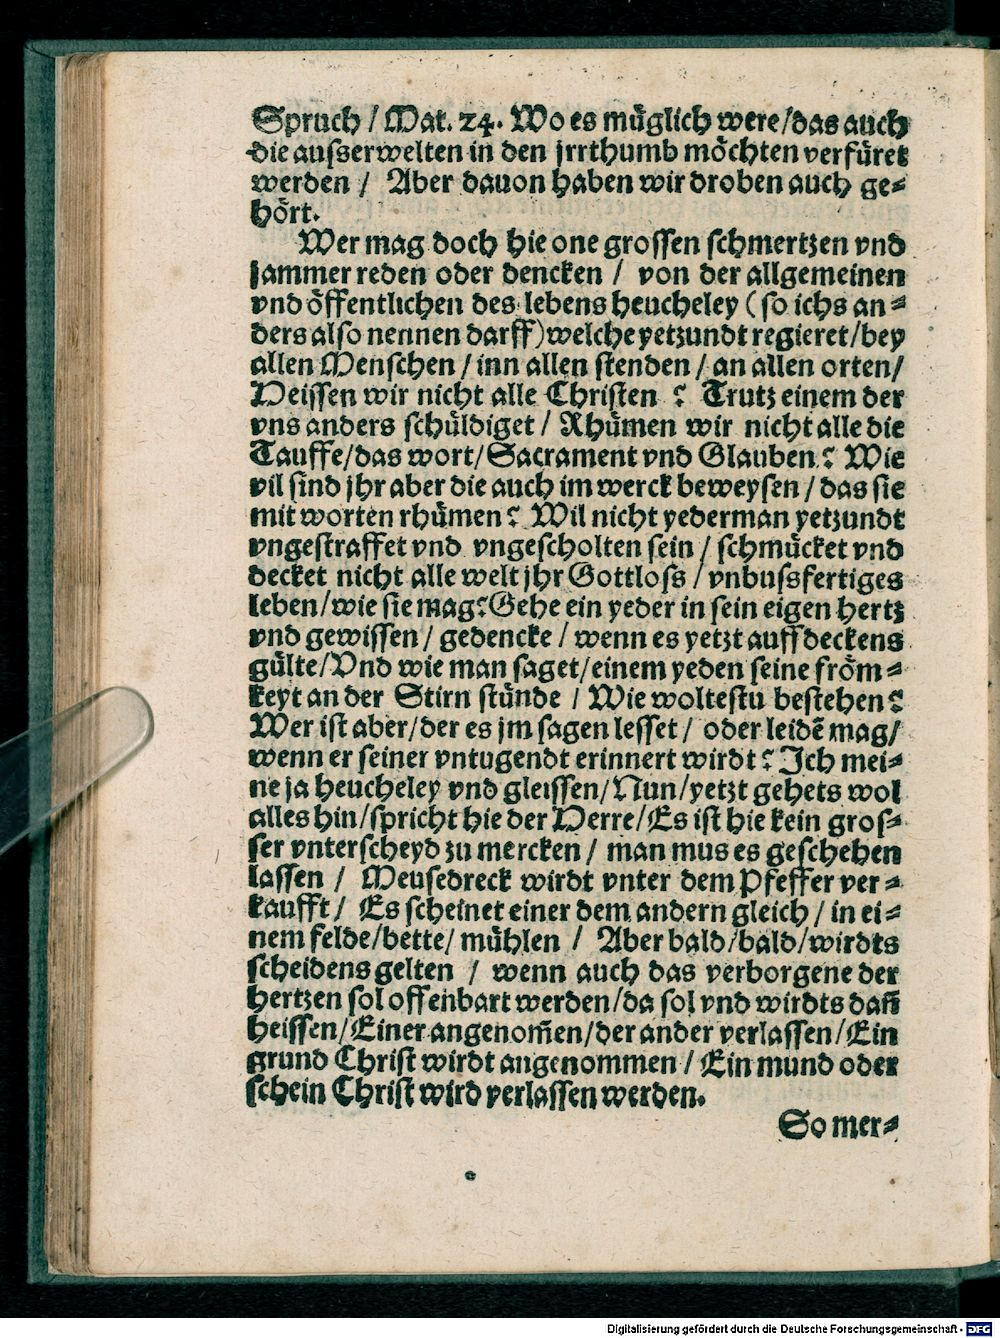 Spruch / Mat. 24. Wo es müglich were/das auch
die ausserwelten in den jrrthumb möchten verfüret
werden / Aber dauon haben wir droben auch ge⸗
hört.
Wer mag doch hie one grossen schmertzen vnd
jammer reden oder dencken / von der allgemeinen
vnd öffentlichen des lebens heucheley (so ichs an⸗
ders also nennen darff) welche yetzundt regieret/bey
allen Menschen / inn allen stenden / an allen orten/
Heissen wir nicht alle Christen ? Trutz einem der
vns anders schüldiget / Rhümen wir nicht alle die
Tauffe/das wort/Sacrament vnd Glauben? Wie
vil sind jhr aber die auch im werck beweysen / das sie
mit worten rhümen? Wil nicht yederman yetzundt
vngestraffet vnd vngescholten sein / schmücket vnd
decket nicht alle welt jhr Gottloss / vnbussfertiges
leben/wie sie mag? Gehe ein yeder in sein eigen hertz
vnd gewissen / gedencke / wenn es yetzt auffdeckens
gülte/Vnd wie man saget/einem yeden seine fröm⸗
keyt an der Stirn stünde / Wie woltestu bestehen?
Wer ist aber/der es jm sagen lesset / oder leidẽ mag/
wenn er seiner vntugendt erinnert wirdt? Ich mei⸗
ne ja heucheley vnd gleissen/Nun/yetzt gehets wol
alles hin/spricht hie der Herre/Es ist hie kein gros⸗
ser vnterscheyd zu mercken / man mus es geschehen
lassen / Meusedreck wirdt vnter dem Pfeffer ver⸗
kaufft / Es scheinet einer dem andern gleich / in ei⸗
nem felde/bette/ mühlen / Aber bald/bald/wirdts
scheidens gelten / wenn auch das verborgene der
hertzen sol offenbart werden/da sol vnd wirdts dañ
heissen/Einer angenom̃en/der ander verlassen/Ein
grund Christ wirdt angenommen / Ein mund oder
schein Christ wird verlassen werden.
So mer⸗
Digitalisierung gefördert durch die Deutsche Forschungsgemeinschaft - DFG